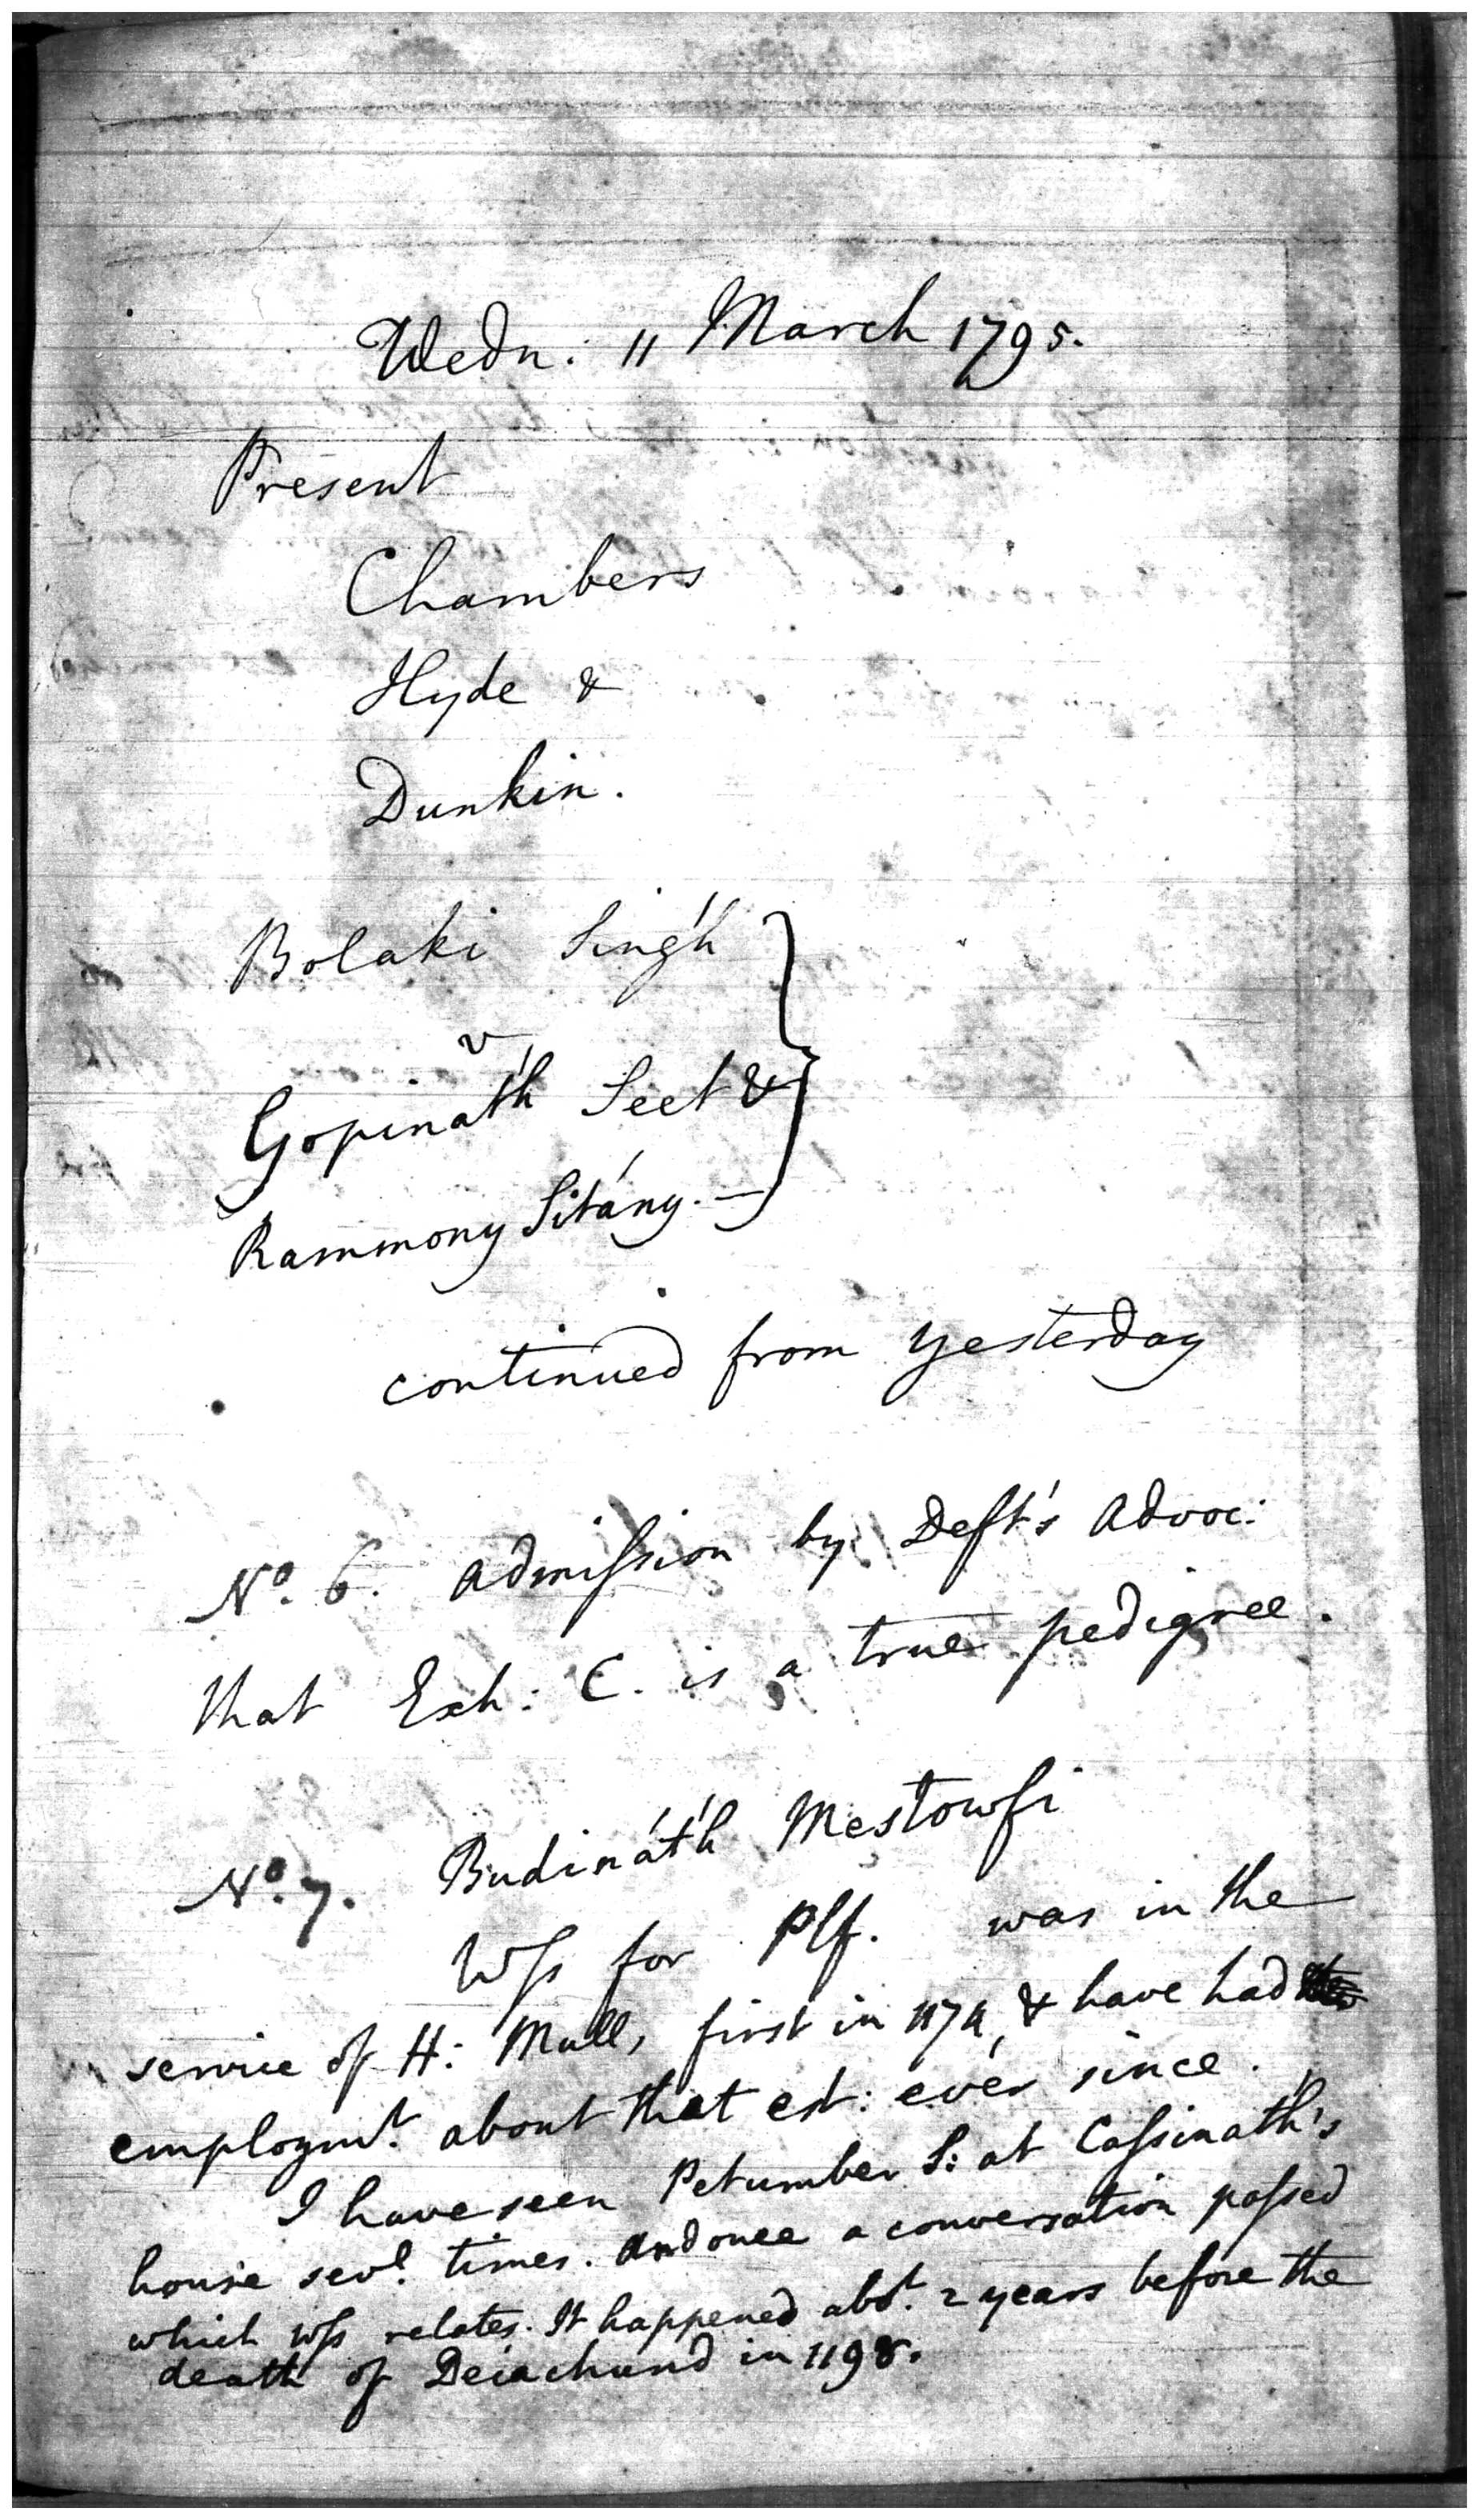 Wedn: 11 March 1795.
Present
Chambers
Hyde &
Dunkin.
Bolaki Singh
v
Gopináth Seet &
Rammony Sitány. —
continued from yesterday
No. 6. admission by Deft's advoc:
that Exh: C. is a true pedigree.
No. 7. Budináth Mestowfi
Wss for Plf. was in the
service of H: Mull, first in & have had
employmt. about that est: ever since.
I have seen Petumber S: at Cassinath's
house sevl. times. and once a conversation passed
which wss relates. It happened abt. 2 years before the
death of Deiachund in 1198.